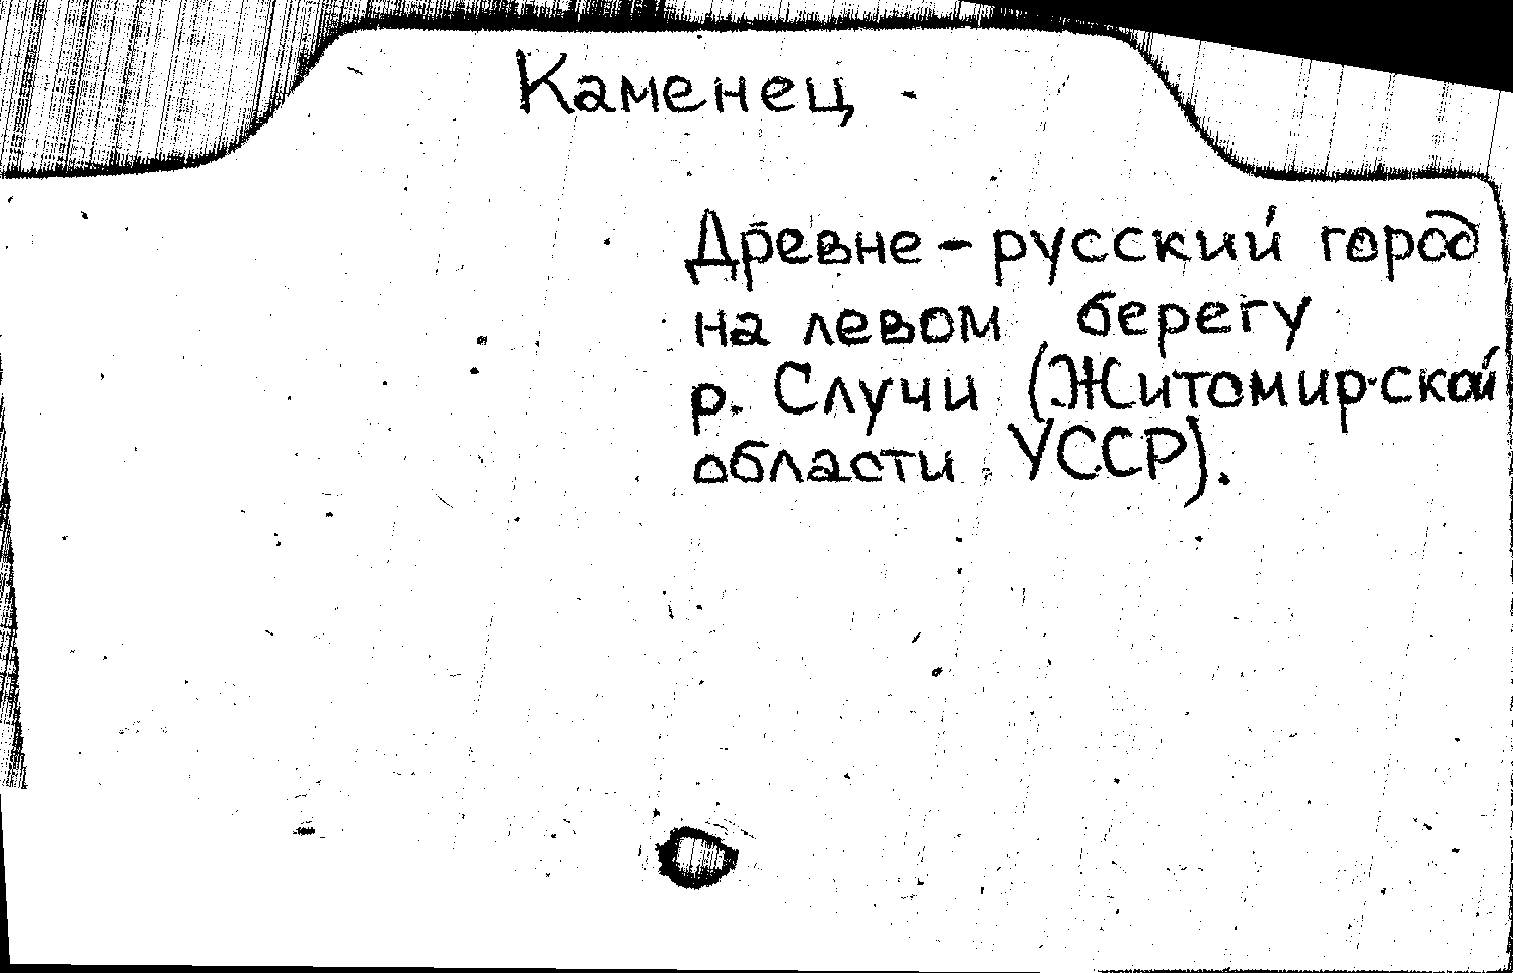 Каменец -
Древне-русский город
на левом берегу
р. Случи (Житомирской
области УССР).